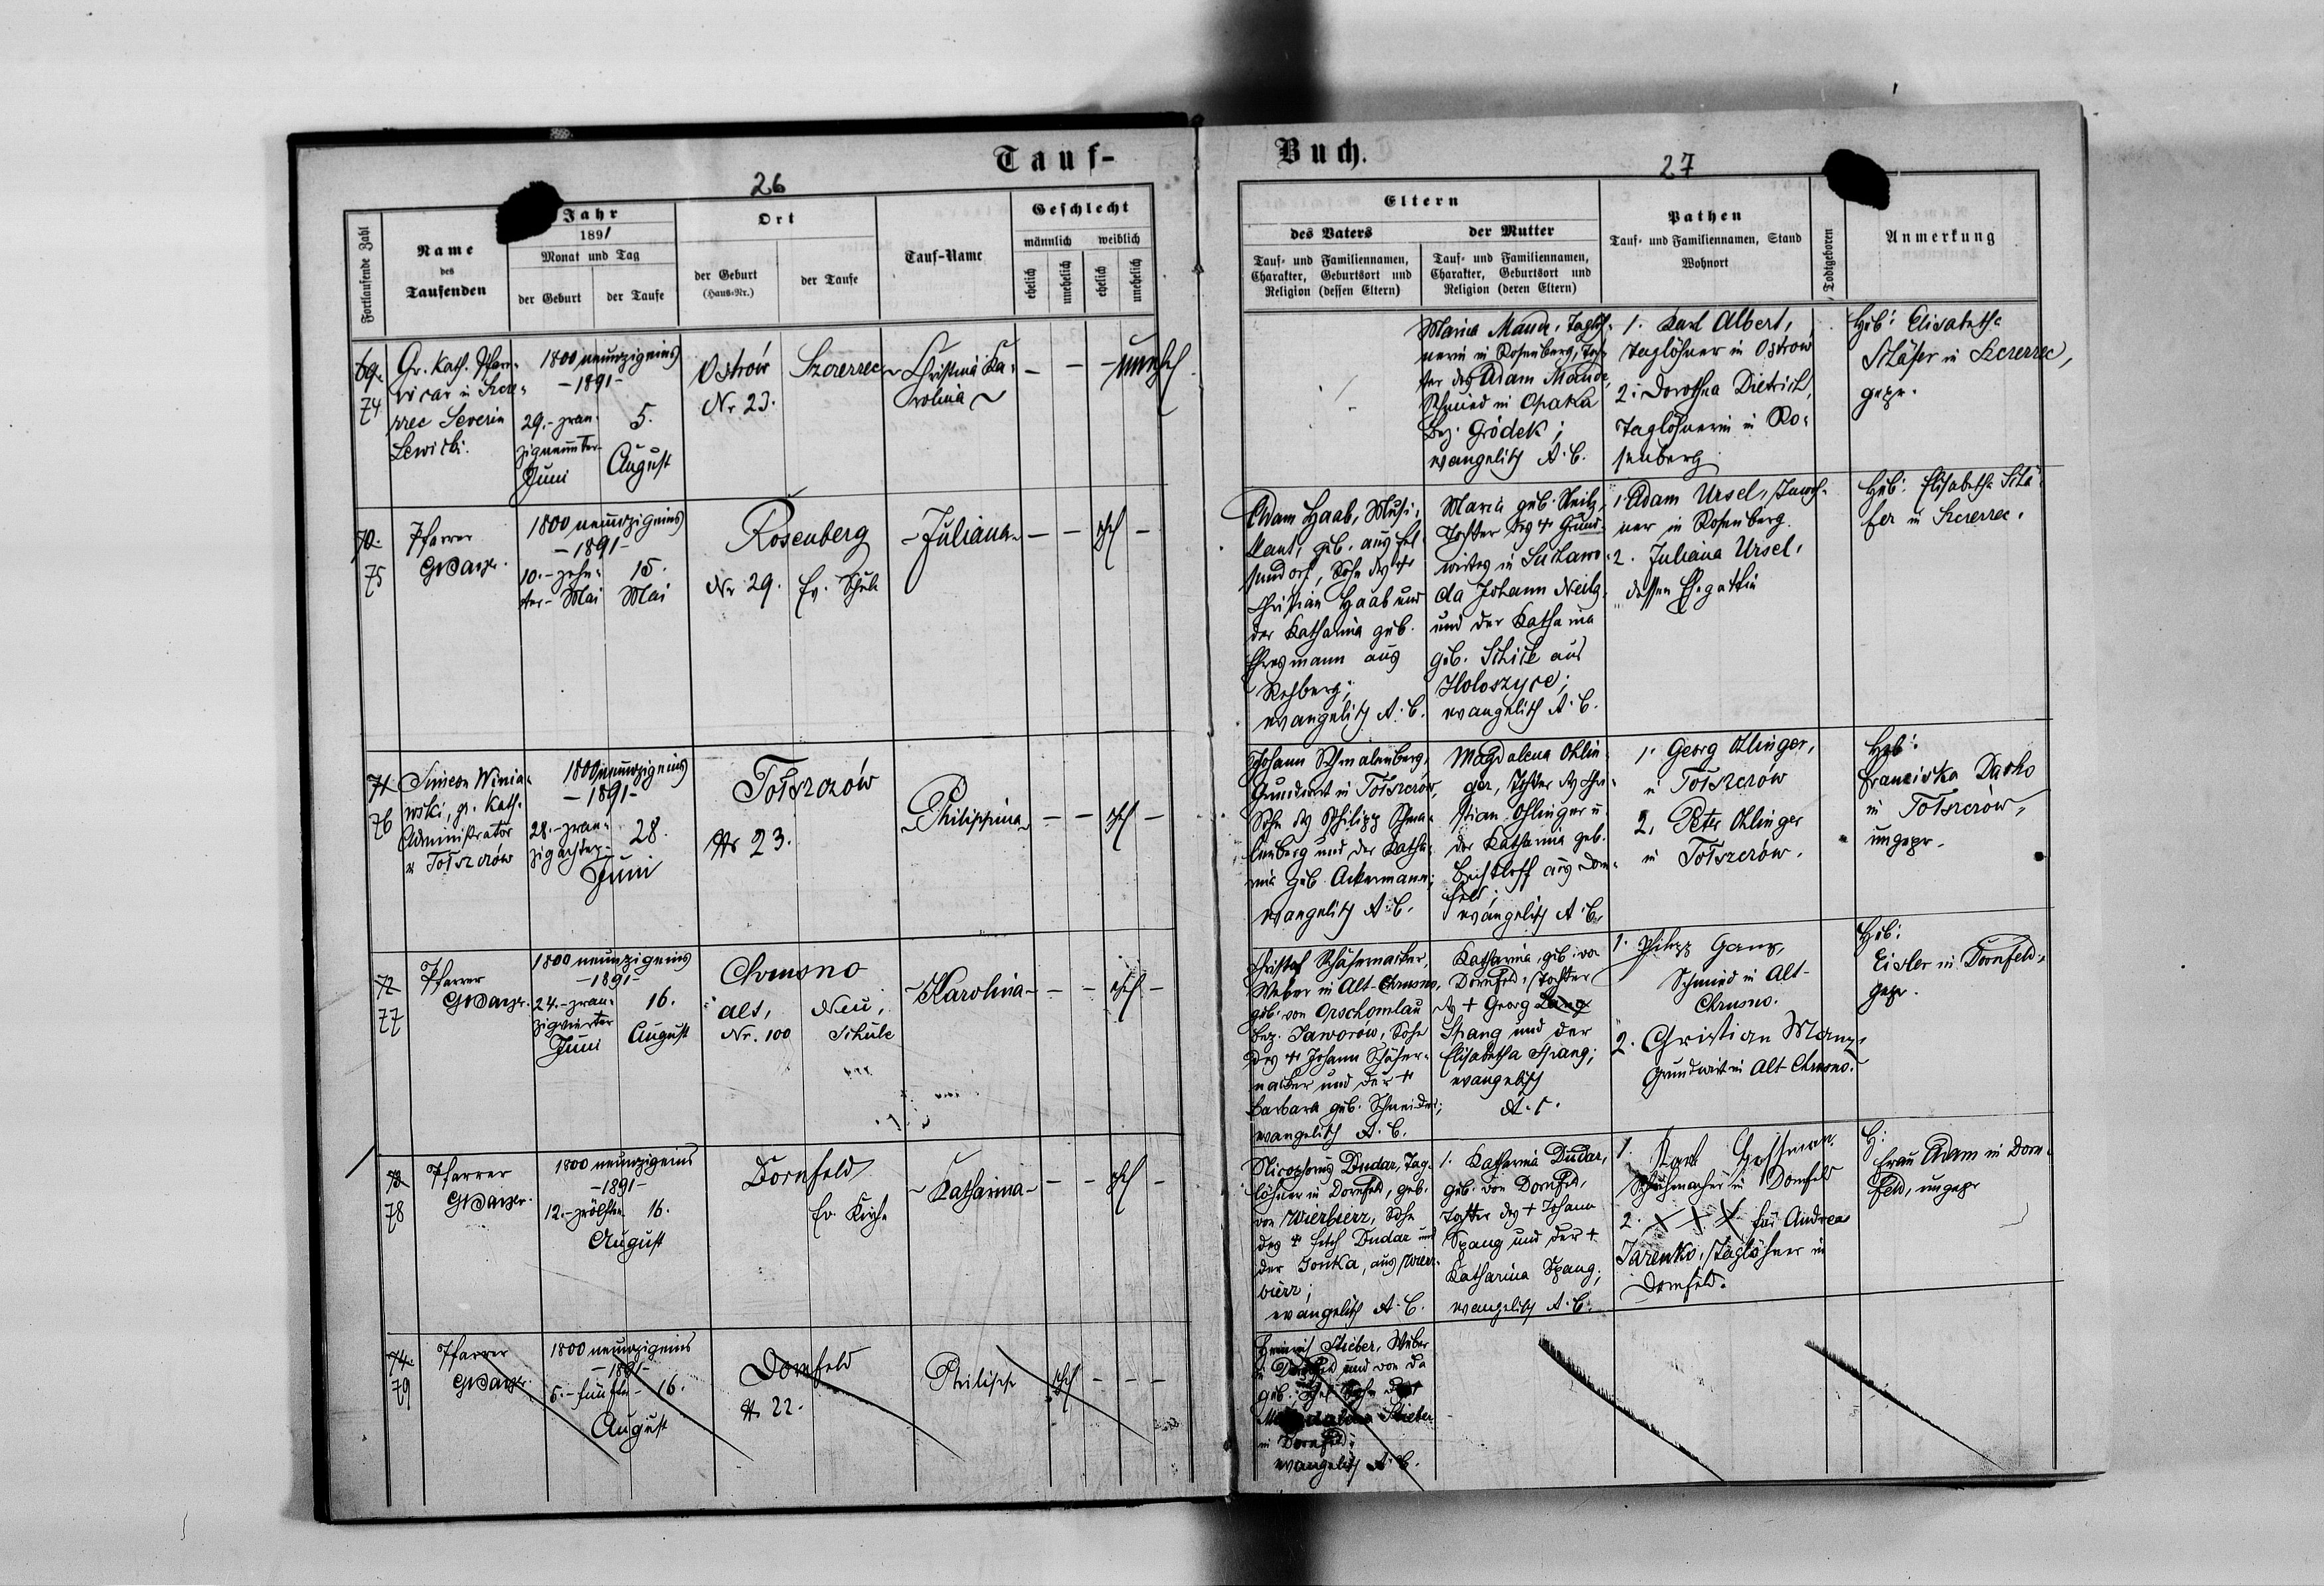 Tauf-
26
Fortlaufende Zahl
Name
des
Taufenden
Jahr
1891
Monat und Tag
der Geburt
der Taufe
Ort
der Geburt
(Haus-Nr.)
der Taufe
Tauf-Name
Geschlecht
männlich
weiblich
ehelich
unehelich
ehelich
unehelich
69.
74
Gr. kath. Pfarr-
vicar in Szcze-
rzec Severin
Lewicki.
1800 neunzigeins
- 1891 -
29.- zwan-
zigneunter
Juni
5.
August
Ostrów
Nr. 23.
Szczerzec
Christina Ka-
rolina
- - - unehel
70.
75
Pfarrer
1800 neunzigeins
- 1891 -
10.- zehn-
ter - Mai
15.
Mai
Rosenberg
Nr 29.
Ev. Schule
- Juliana -
- - ehel -
71
76
Simeon Winia-
wski, gr. kath.
Administrator
in Tołszczów
1800 neunzigeins
- 1891 -
28.- zwan-
zigachter
28.
Juni
Tołszczów
Nr 23.
- Philippina -
- - ehel -
72
77
Pfarrer
1800 neunzigeins
- 1891 -
24.- zwan-
zigvierter
Juni
16.
August
Chrusno
alt,
Nr. 100
Neu,
Schule
- Karolina -
- - ehel -
73
78
Pfarrer
1800 neunzigeins
- 1891 -
12.- zwölfter
16.
August
Dornfeld
Ev. Kirche
- Katharina -
- - ehel -
74.
79
Pfarrer
1800 neunzigeins
- 1891 -
5.- fünfter -
16.
August
Dornfeld
Nr. 22.
Philipp
ehel - - -
Buch.
27
Eltern
des Vaters
der Mutter
Tauf- und Familiennamen,
Charakter, Geburtsort und
Religion (dessen Eltern)
Tauf- und Familiennamen,
Charakter, Geburtsort und
Religion (deren Eltern)
Pathen
Tauf- und Familiennamen, Stand
Wohnort
Todtgeboren
Anmerkung
Maria Maude, Taglöh-
nerin in Rosenberg, Toch-
ter des Adam Maude,
Schmied in Opaka
Bez. Gródek;
evangelisch A. C.
1. Karl Albert,
Taglöhner in Ostrow
2. Dorothea Dietrich,
Taglöhnerin in Ro-
senberg
Heb: Elisabetha
Schäfer in Szczerzec,
gepr.
Adam Haab, Musi-
kant, geb. aus Fal-
kendorf, Sohn des +
Christian Haab und
der Katharina geb.
Ehresmann aus
Rehberg;
evangelisch A. C.
Maria geb. Neitz,
Tochter des + Grund-
wirtes in
da Johann Neitz
und der Katharina
geb. Schick aus
Hołoszyce;
evangelisch A. C.
1. Adam Ursel, Inwoh-
ner in Rosenberg.
2. Juliana Ursel,
dessen Ehegattin
Heb: Elisabetha Schä-
fer in Szczerzec.
Johann Schmalenberg,
Grundwirt in Tołszczów,
Sohn des Philipp Schma-
lenberg und der Katha-
rina geb. Ackermann;
evangelisch A. C.
Magdalena Ohlin-
ger, Tochter des Chri-
stian Ohlinger u.
der Katharina geb.
Bechtloff aus Dorn-
feld;
evangelisch A. C.
1. Georg Ohlinger,
in Tołszczów
2. Peter Ohlinger
in Tołszczów.
Heb:
Franciska Dasko
in Tołszczów,
ungepr.
Christof Schäfernacker,
Weber in Alt-Chrusno,
geb. von Opschomlau
Bez. Jaworów, Sohn
des + Johann Schäfer-
nacker und der +
Barbara geb. Schneider;
evangelisch A. C.
Katharina, geb. von
Dornfeld, Tochter
des + Georg Lang
Spang und der
Elisabetha Spang;
evangelisch
A. C.
1. Philipp Ganz,
Schmied in Alt-
Chrusno.
2. Christian Manz,
Grundwirt in Alt Chrusno.
Heb:
Eisler in Dornfeld,
gepr.
Dudar, Tag-
löhner in Dornfeld, geb.
von Wierbierz, Sohn
des + Fetch Dudar und
der Jonka, aus Wierz-
bierz;
evangelisch A. C.
1. Katharina Dudar,
geb. von Dornfeld,
Tochter des + Johann
Spang und der +
Katharina Spang;
evangelisch A. C.
1. Karl
Schuhmacher in Dornfeld
2. XXX für Andreas
Jarenko, Taglöhner in
Dornfeld.
H:
Frau Adam in Dorn-
feld, ungepr
Heinrich Stieber, Weber
in Dornfeld und von da
geb.; Sohn der
Magdalena Stieber
in Dornfeld;
evangelisch A. C.